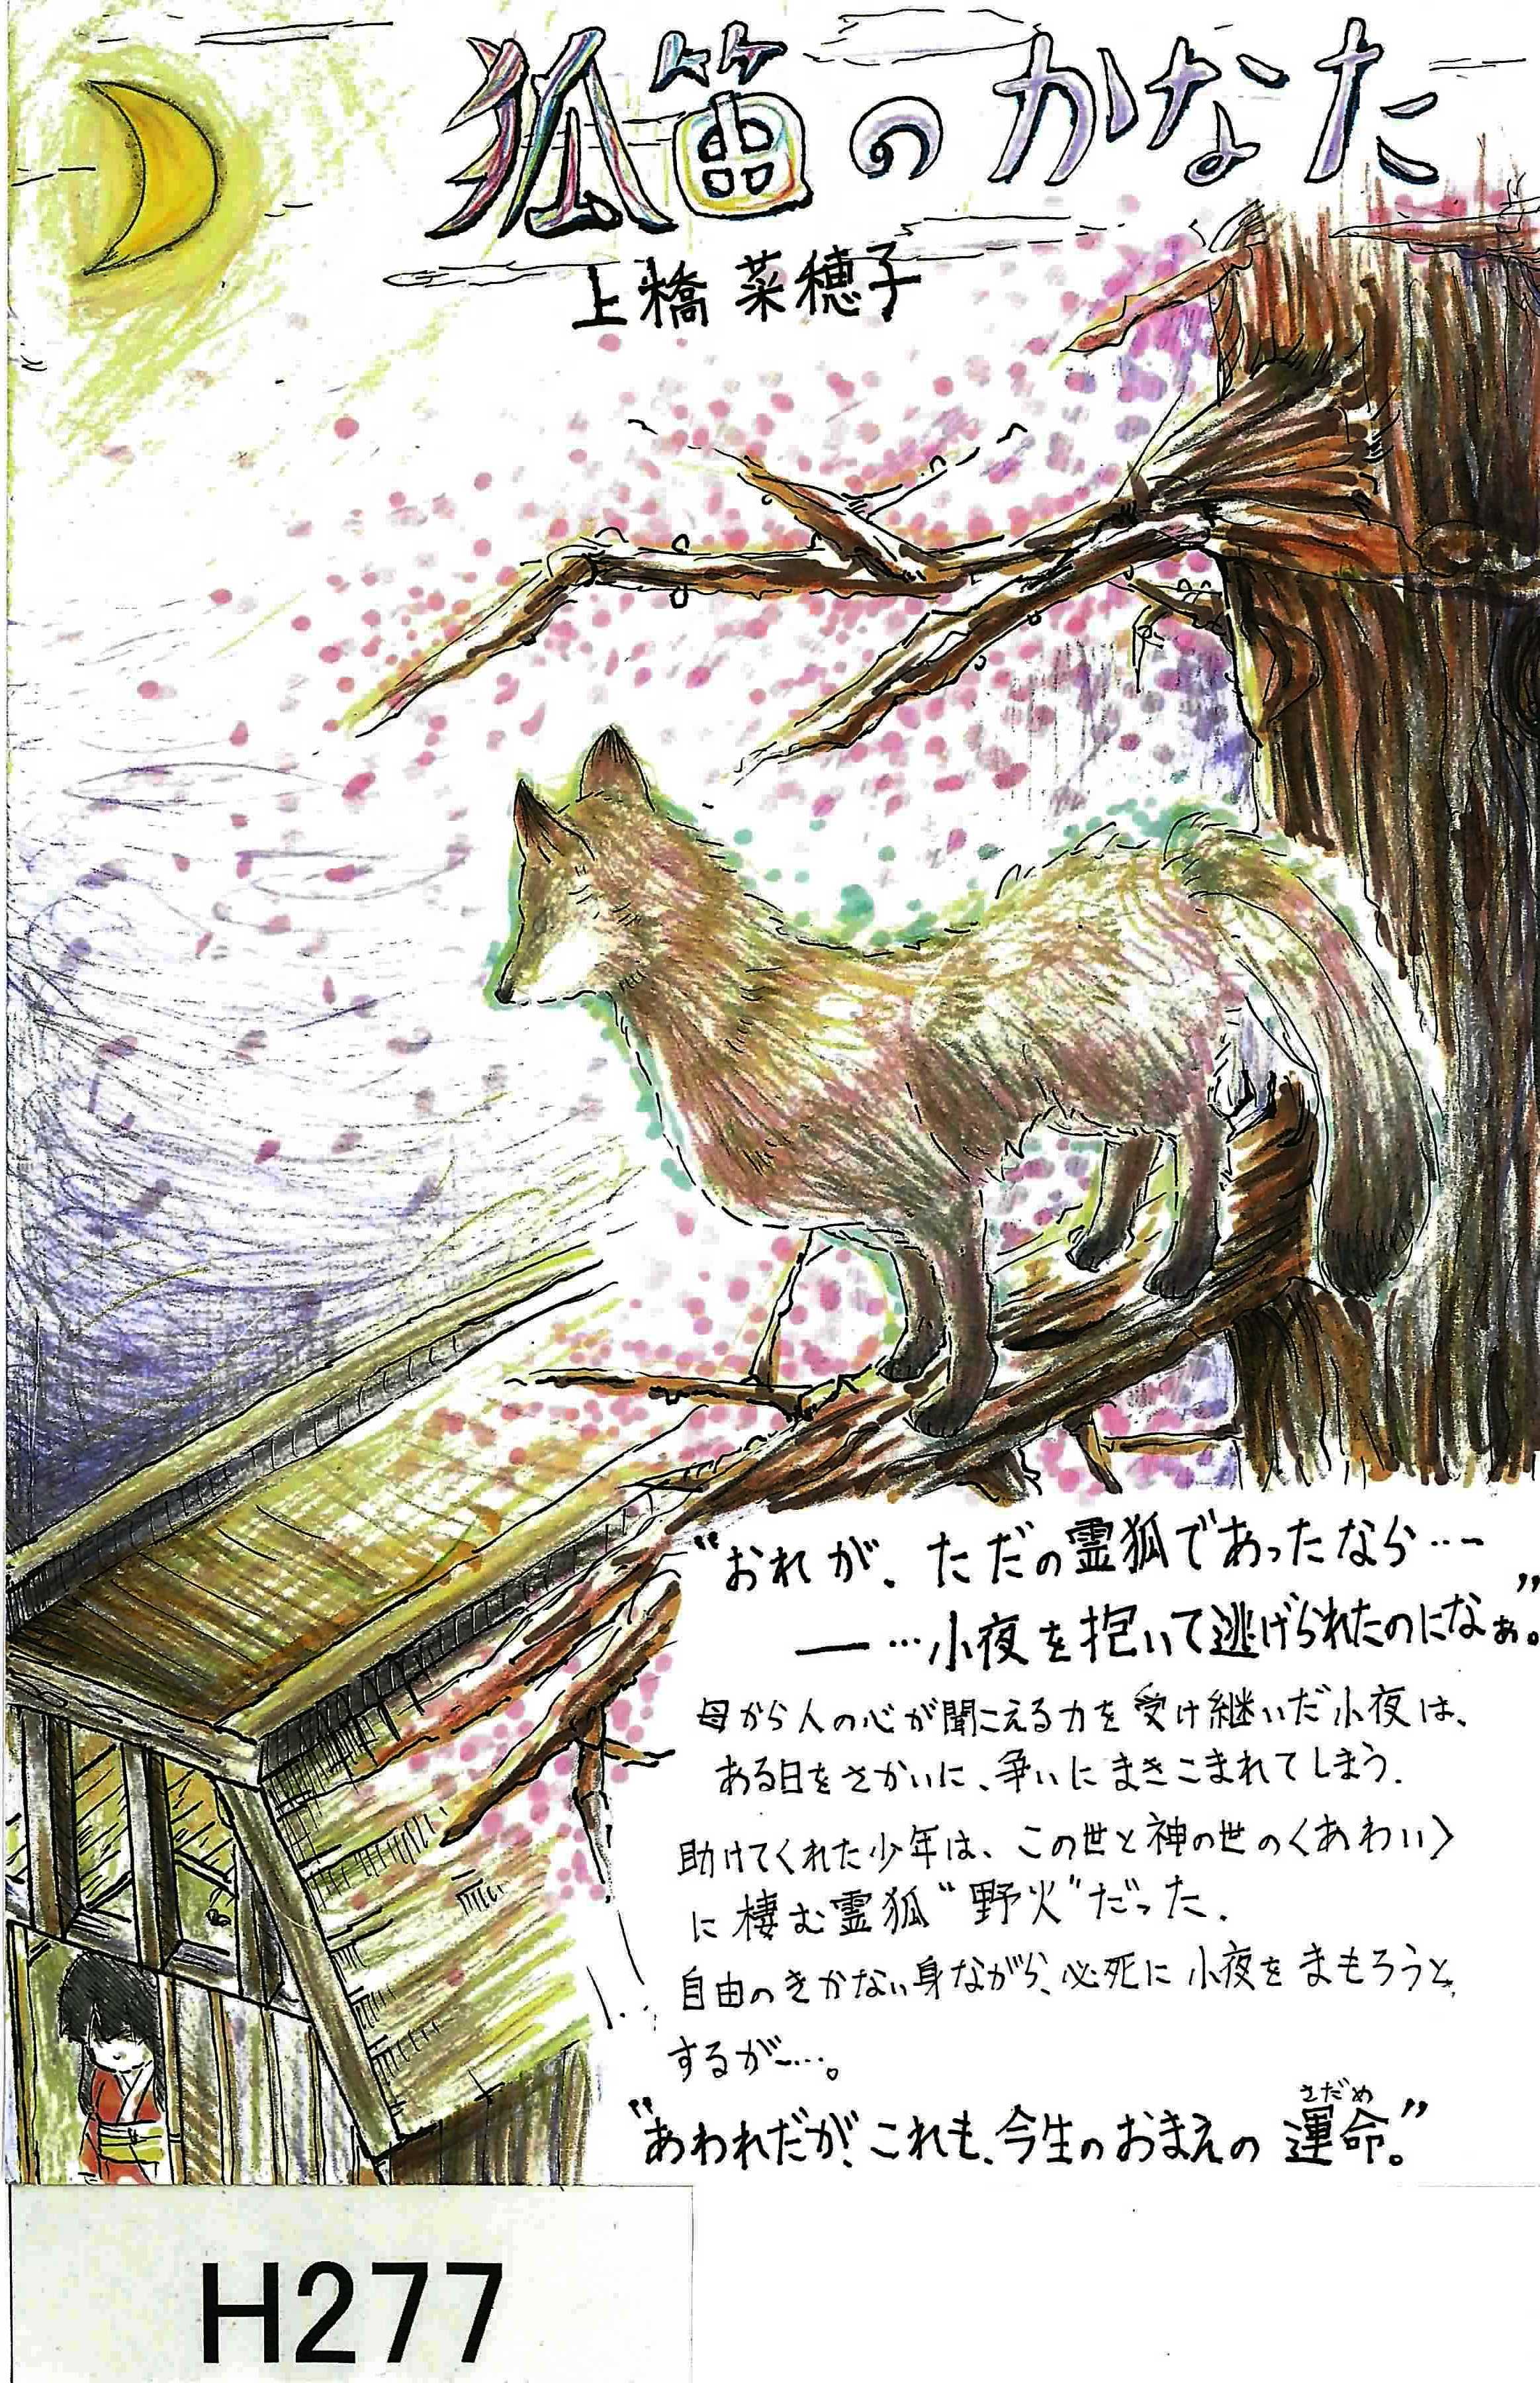 狐笛のかなた
上橋菜穂子
“おれが、ただの霊狐であったなら…ー
ー…小夜を抱いて逃げられたのになぁ。”
母から人の心が聞こえる力を受け継いだ小夜は、
ある日をさかいに、争いにまきこまれてしまう.
助けてくれた少年は、この世と神の世の〈あわい〉
に棲む霊狐“野火”だった.
自由のきかない身ながら、必死に小夜をまもろうと
するが…。
“あわれだが、これも、今生のおまえの運命。”
さだめ
H277